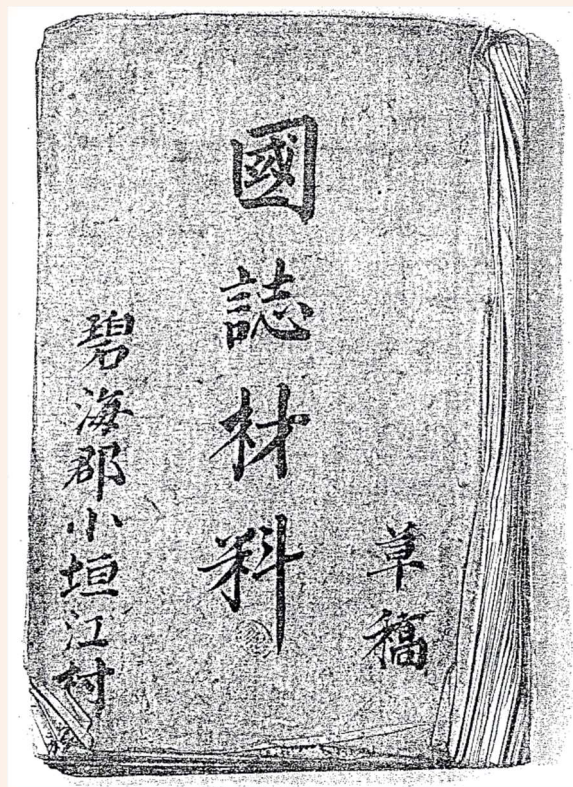 草稿
國誌材料
碧海郡小垣江村